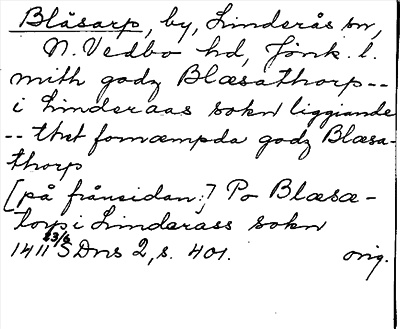 Blåsarp, by, Linderås sn,
N. Vedbo hd, Jönk. l.
mith godz Blæsathorp--
i Linderaas sokn liggiande
-- thet fornæmpda godz Blæsa-
thorp
[på frånsidan:] Po Blæsæ-
torp i Linderass sokn
1411 23/6 SDns 2, s. 401. orig.